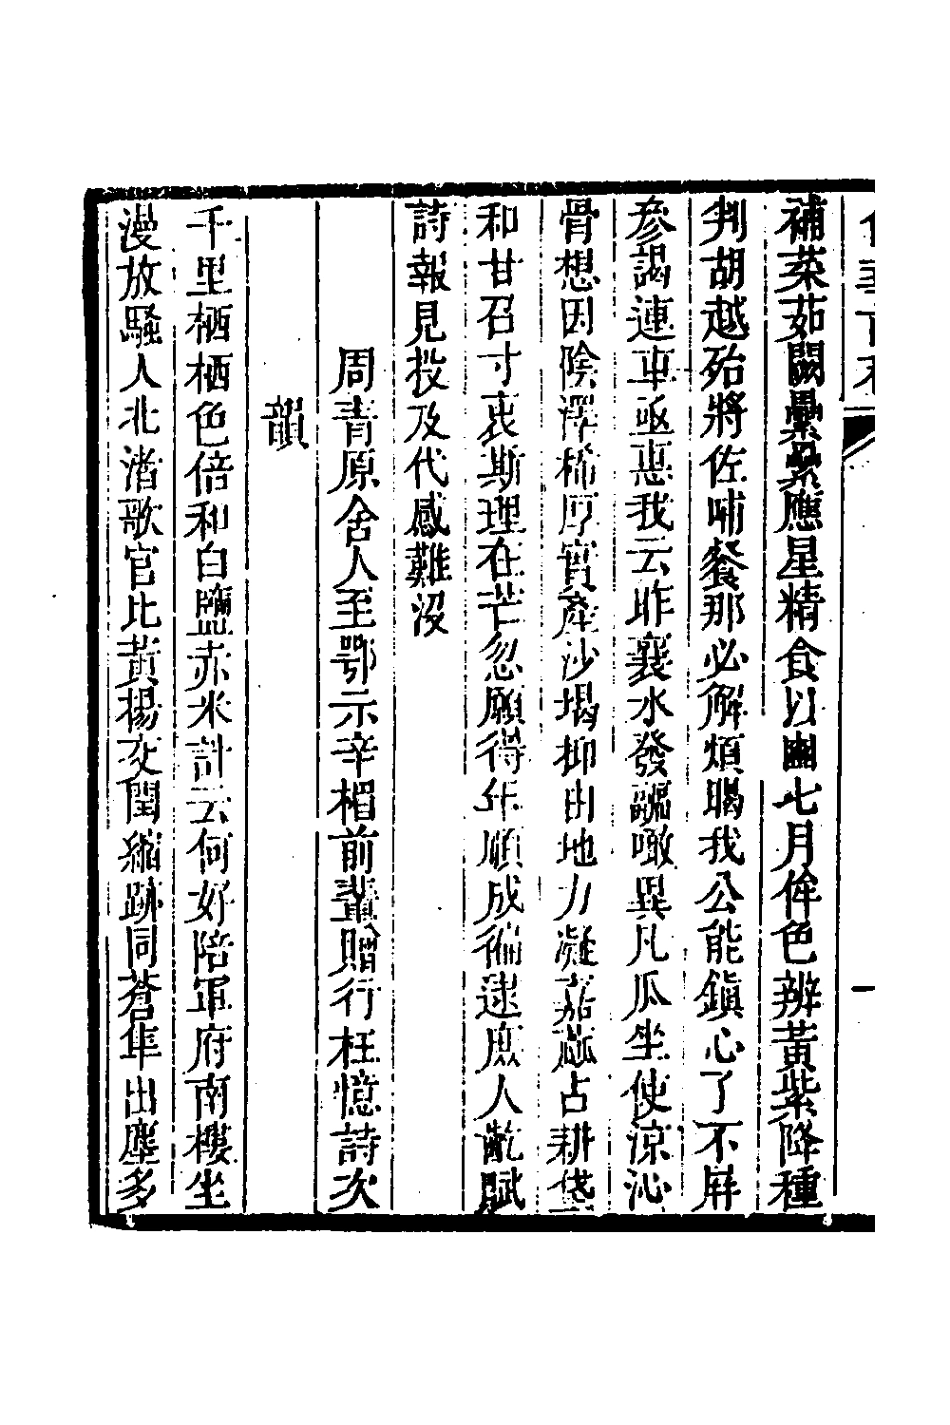 補菜茹闕纍纍應星精食以豳七月侔色辨黃紫降種
判胡越殆將佐哺餐那必解煩暍我公能鎮心了不屏
參謁連車亟惠我云昨襄水發譊噉異凡瓜坐使涼沁
骨想因陰澤稀厚實產沙堨抑由地力凝嘉蔬占耕
和甘召寸衷斯理在芒忽願得年順成徧逮庶人齕賦
詩報見投及代感難沒
周青原舍人至鄂示辛楣前輩贈行枉憶詩次
韻
千里栖栖色倍和白鹽赤米計云何好陪軍府南樓坐
漫放騷人北渚歌官比黃楊交閏縮跡同蒼隼出塵多